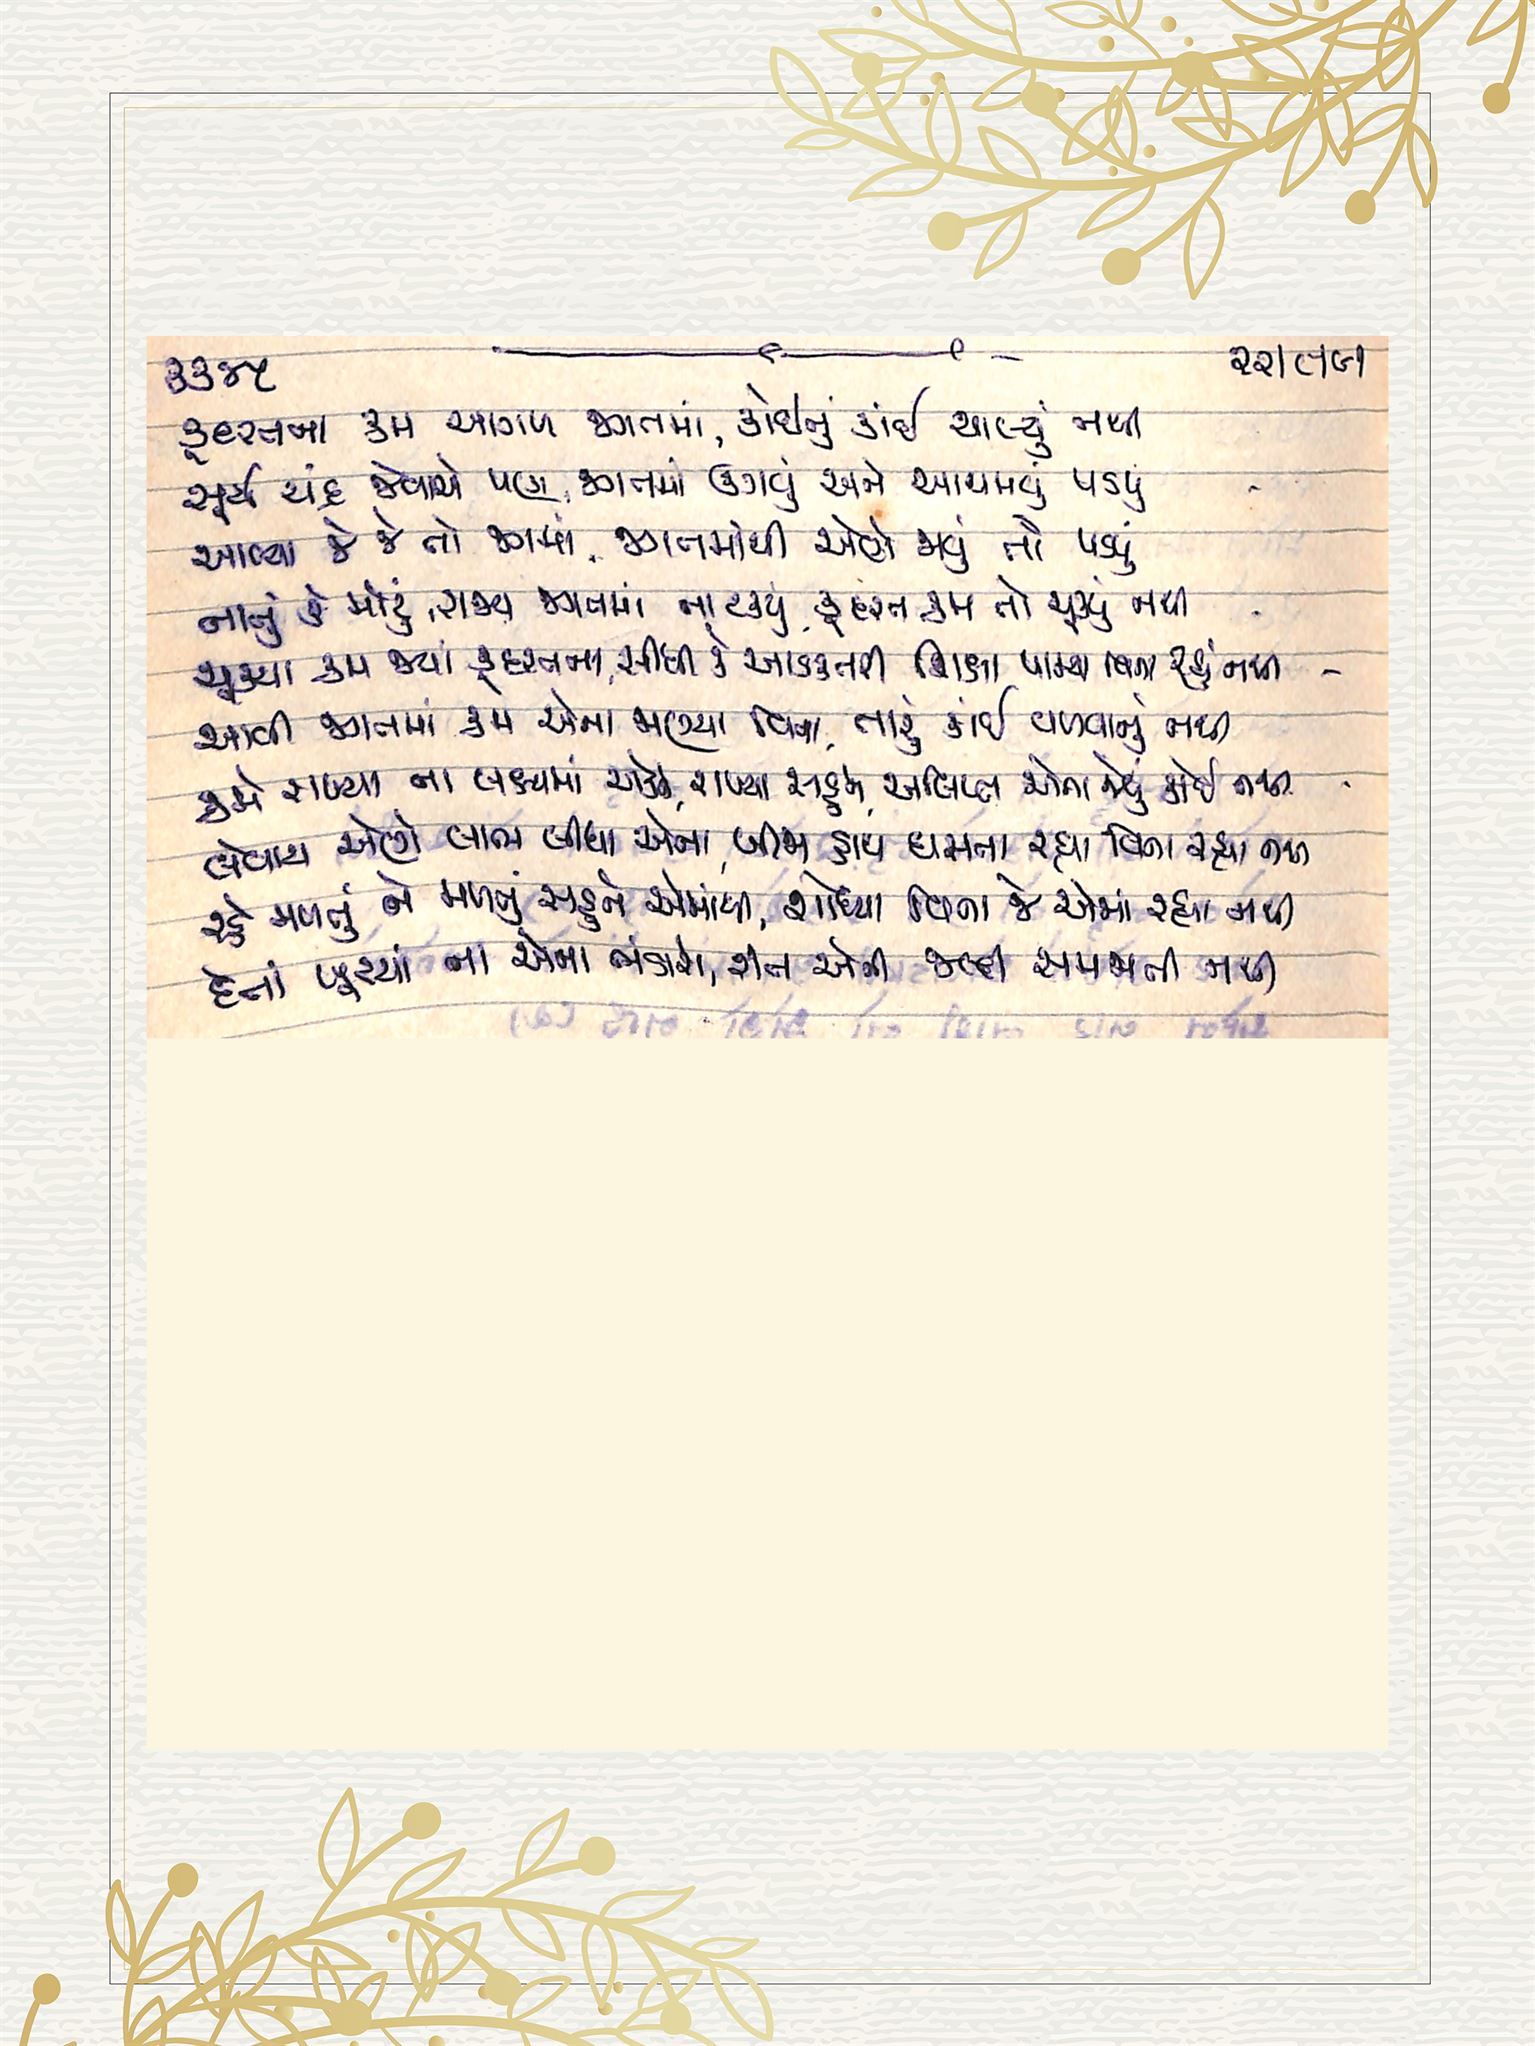 ૩૩૪૫ ૨૨।૮૫૧
કૂદરતના ક્રમ આગળ જગતમાં, કોઈનું કાંઈ ચાલ્યું નથી
સૂર્ય ચંદ્ર જેવાએ પણ, જગતમાં ઉગવું અને આથમવું પડયું
આવ્યા જે જે તો જગમાં, જગતમાંથી એણે જાવું તો પડયું
નાનું કે મોટું, રાજ્ય જગતમાં ના ટકયું, કૂદરત ક્રમ તો ચૂકયું નથી
ચૂકયા ક્રમ જ્યાં કૂદરતના, સીધી કે આડકતરી શિક્ષા પામ્યા વિના રહ્યું નથી
આવી જગતમાં ક્રમ એના જાણ્યા વિના, તારું કાંઈ વળવાનું નથી
ક્રમે રાખ્યા ના લક્ષ્યમાં એણે, રાખ્યા સહુને, અલિપ્ત એના જેવું કોઈ નથી
લેવાય એણે લાભ લીધા એના, બીજા હાથ ઘસતા રહ્યા વિના રહ્યા નથી
રહે મળતું ને મળતું સહુને એમાંથી, શોધ્યા વિના જે એમાં રહ્યા નથી
દેતાં ખૂટયાં ના એના ભંડારો, રીત એની જલ્દી સમજાતી નથી